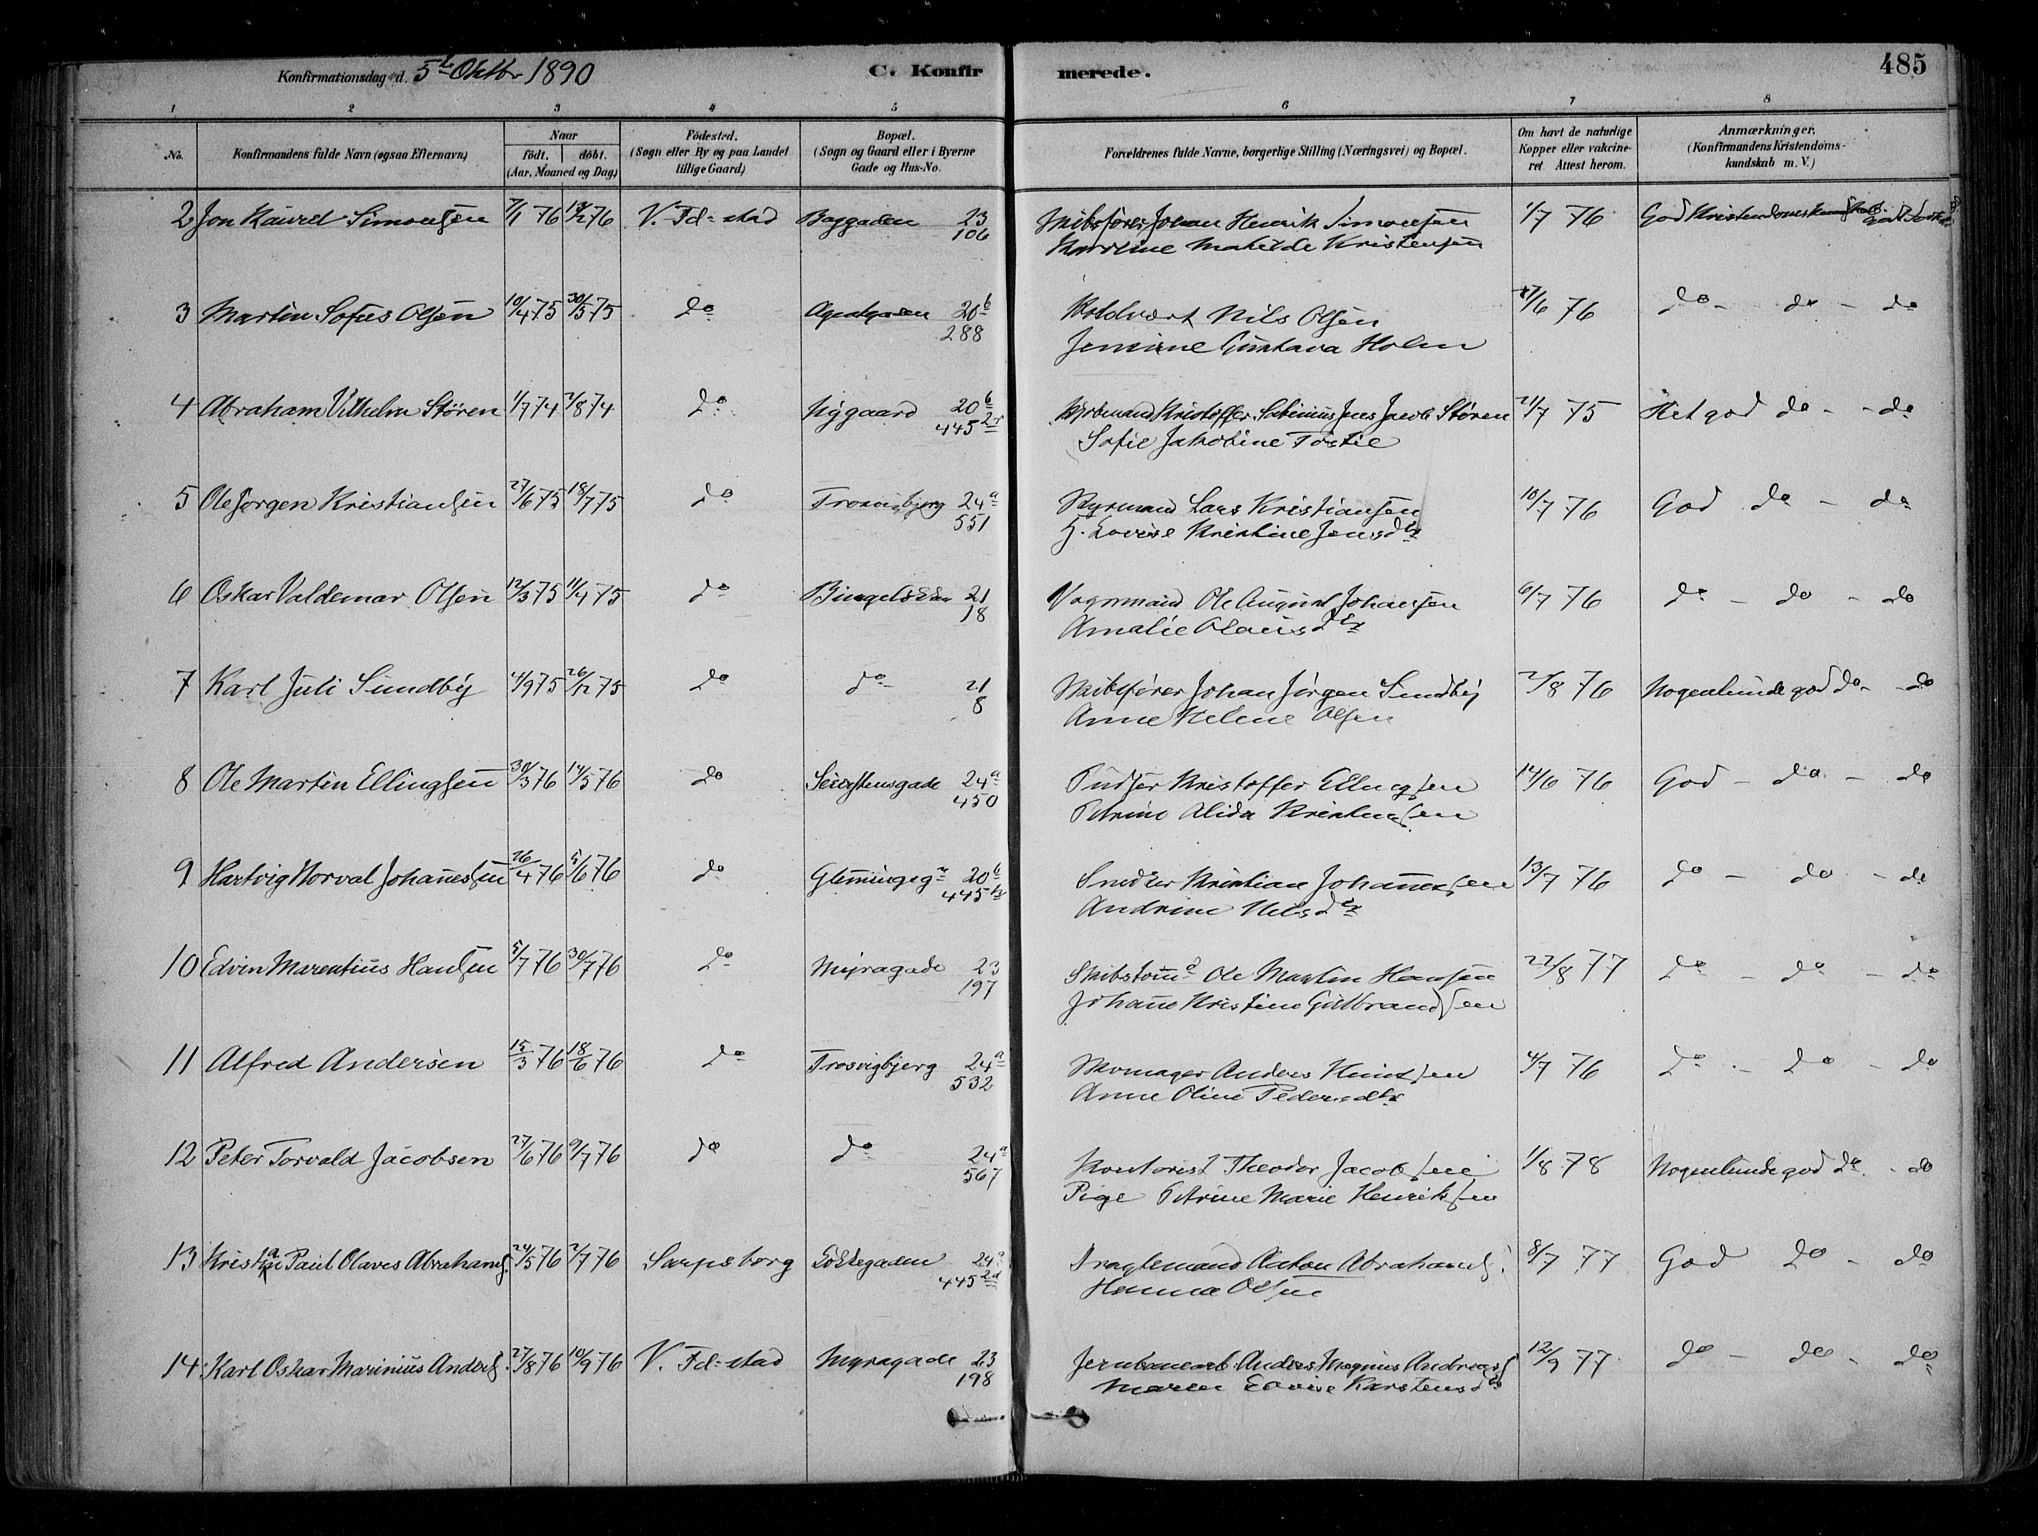 Konfirmationsdag d. 5te Oktbr 1890 C. Konfirmerede. 485
1 2 3 4 5 6 7 8
No. Konfirmandens fulde Navn (ogsaa Efternavn) Naar födt. döbt. (Aar, Maaned og Dag) Födested. (Sogn eller By og paa Landet tillige Gaard) Bopæl. (Sogn og Gaard eller i Byerne Gade og Hus-No. Forældrenes fulde Navne, borgerlige Stilling (Næringsvei) og Bopæl. Om havt de naturlige Kopper eller vakcineret Attest herom. Anmærkninger. (Konfirmandens Kristendomskundskab m. V.)
2 Jon Laurel Simonsen 7/1 76 76 V. Fd-stad Baggaden 23 Skibsfører Johan Henrik Simonsen 1/7 76 God Kristendomskundskab
106 Karoline Matilde Kristensen
3 Martin Sofus Olsen 10/4 75 30/5 75 do 20 b Nils Olsen 17/6 76 do - do - do
288 Gustava Holm
4 Abraham Vilhelm Stören 1/7 74 2/8 74 do Nygaard 20 b Kristoffer Jens Jacob Stören 21/7 75 Ret god do - - do
445 Sofie Jakobine
5 Ole Jorgen Kristiansen 27/6 75 18/7 75 do Trosvigbjerg 24 a Styrmand Lars Kristiansen 10/7 76 God do - do
551 H. Lovise Kristine Jensdtr
6 Oskar Valdemar Olsen 12/3 75 11/4 75 do 21 Vognmand Ole August Johansen 6/7 76 do - do - do
18 Amalie Olausdtr
7 Karl Juli Sundby 4/9 75 26/12 75 do do 21 Skibsfører Johan Jörgen Sundby 2/8 76 Nogenlunde god do - do
8 Anne Helene Olsen
8 Ole Martin Ellingsen 30/3 76 14/5 76 do 24 a Kristoffer Ellingsen 14/6 76 God - do - do
450 Petrine Alida Kristensen
9 Hartvig Norval Johannesen 16/4 76 5/6 76 do 20 b Kristian Johannesen 13/7 76 do - do - do
445 Andrine Nilsdtr
10 Edvin Marentius Hansen 5/7 76 30/7 76 do Myragade 23 Skibstömd Ole Martin Hansen 22/8 77 do - do - do
197 Johane Kristine Gulbrandsen
11 Alfred Andersen 15/3 76 18/6 76 do Trosvigbjerg 24 a Skomager Anders Knudsen 4/7 76 do - do - do
532 Anne Oline Pedersdtr
12 Peter Torvald Jacobsen 27/6 76 9/7 76 do do 24 a Kontorist Theodor Jacobsen 1/8 78 Nogenlunde god do - do
567 Pige Petrine Marie Henriksen
13 Kristian Paul Olaves Abrahams. 24/5 76 2/7 76 Sarpsborg 24 a Anton Abrahams. 8/7 77 God do - do
445 2d Olsen
14. Karl Oskar Marinius Anders. 27/8 76 10/9 76 V. Fd-stad Myragade 23 Jernbanearb. Anders Magnus Andreas. 12/9 77 do - do - do
198 Maren Lovise Karstensdtr